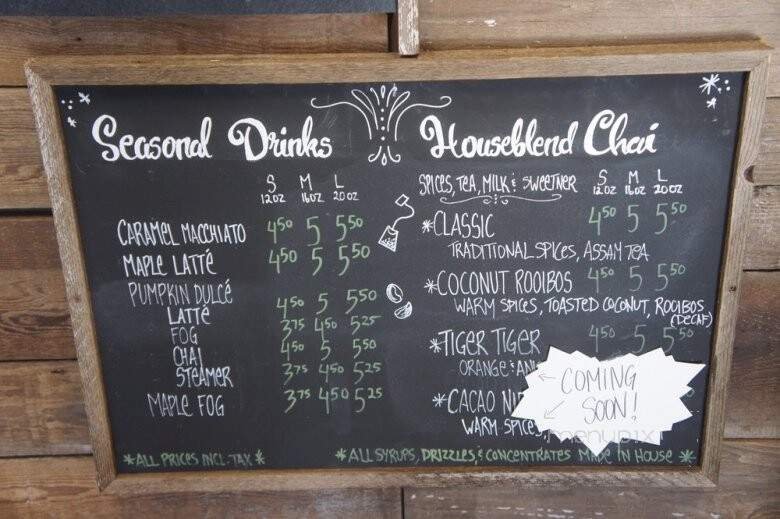 Seasonal Drinks
S M L
12oz 16oz 20oz
CARAMEL MACCHIATO 4⁵⁰ 5 5⁵⁰
MAPLE LATTé 4⁵⁰ 5 5⁵⁰
PUMPKIN DULCé
LATTé 4⁵⁰ 5 5⁵⁰
FOG 3⁷⁵ 4⁵⁰ 5²⁵
CHAI 4⁵⁰ 5 5⁵⁰
STEAMER 3⁷⁵ 4⁵⁰ 5²⁵
MAPLE FOG 3⁷⁵ 4⁵⁰ 5²⁵
*ALL PRICES INCL. TAX*
Houseblend Chai
SPICES, TEA, MILK & SWEETNER S M L
12oz 16oz 20oz
*CLASSIC 4⁵⁰ 5 5⁵⁰
TRADITIONAL SPICES, ASSAM TEA
*COCONUT ROOIBOS 4⁵⁰ 5 5⁵⁰
WARM SPICES, TOASTED COCONUT, ROOIBOS
(DECAF)
*TIGER TIGER 4⁵⁰ 5 5⁵⁰
ORANGE &
*CACAO
WARM SPICES,
← COMING
SOON!
menupix
*ALL SYRUPS, DRIZZLES, & CONCENTRATES MADE IN HOUSE*